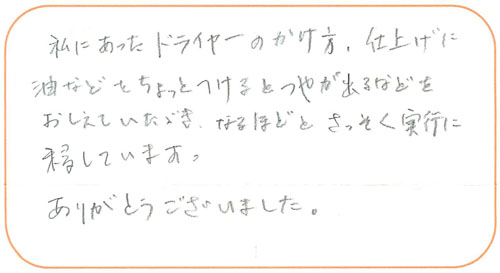 私にあったドライヤーのかけ方、仕上げに
油などをちょっとつけるとつやが出るなどを
おしえていただき、なるほどとさっそく実行に
移しています。
ありがとうございました。